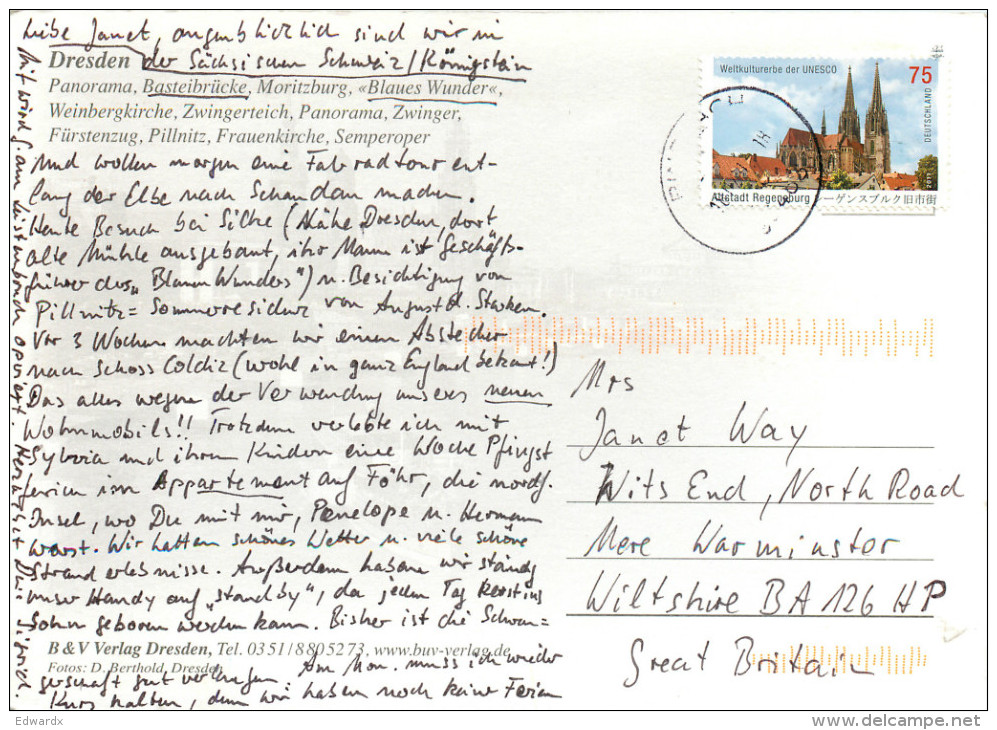 Liebe Janet, augenblicklich sind wir in
Dresden der Sächsischen Schweiz/Königstein
Panorama, Basteibrücke, Moritzburg, «Blaues Wunder«,
Weinbergkirche, Zwingerteich, Panorama, Zwinger,
Fürstenzug, Pillnitz, Frauenkirche, Semperoper
und wollen morgen eine Fahrradtour ent-
lang der Elbe nach Schandau machen.
Heute Besuch bei Silke (Nähe Dresden, dort
alte Mühle ausgebaut, ihr Mann ist Geschäfts-
führer des „Blauen Wunders") u. Besichtigung von
Pillnitz = Sommerresidenz von August d. Starken.
Vor 3 Wochen machten wir einen Abstecher
nach Schoss Colditz (wohl in ganz England bekannt!)
Das alles wegen der Verwendung unseres neuen
Wohnmobils!! Trotzdem verlebte ich mit
Sylvia und ihren Kindern eine Woche Pfingst
ferien im Appartement auf Föhr, die nordf.
Insel, wo Du mit mir, Penelope u. Hermann
warst. Wir hatten schönes Wetter u. viele schöne
Stranderlebnisse. Außerdem haben wir ständig
unser Handy auf „standby", da jeden Tag Kerstins
Sohn geboren werden kann. Bisher ist die Schwan=
B & V Verlag Dresden, Tel. 0351/8805273, www.buv-verlag.de
Fotos: D. Berthold, Dresden
gerschaft gut verlaufen. Am Mon. muss ich wieder
Kurs halten, denn wir haben noch keine Ferien
Mit wird am Leistenbruch operiert. Herzlichst Deine Sigrid.
Weltkulturerbe der UNESCO
75
DEUTSCHLAND
2011
Altstadt Regensburg レーゲンスブルク旧市街
Mrs
Janet Way
Wits End, North Road
Mere Warminster
Wiltshire BA 126 HP
Great Britain
Edwardx
www.delcampe.net